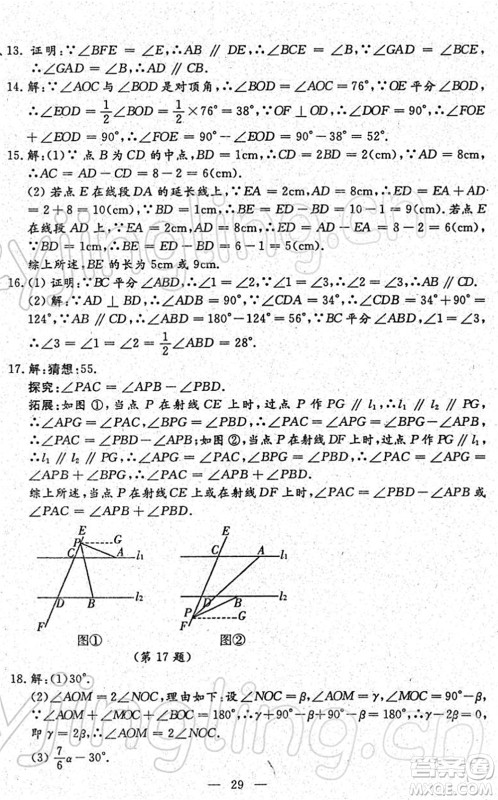 13. 证明:∵∠BFE=∠E,∴AB∥DE,∴∠BCE=∠B.∵∠GAD=∠BCE,
∴∠GAD=∠B,∴AD∥CB.
14. 解:∵∠AOC与∠BOD是对顶角,∴∠BOD=∠AOC=76°,∵OE平分∠BOD,
∴∠EOD=1/2∠BOD=1/2×76°=38°,∵OF⊥OD,∴∠DOF=90°,∴∠FOE
+∠EOD=90°,∴∠FOE=90°-∠EOD=90°-38°=52°.
15. 解:(1)∵点B为CD的中点,BD=1cm,∴CD=2BD=2(cm),∵AD=8cm,
∴AC=AD-CD=8-2=6(cm).
(2)若点E在线段DA的延长线上,∵EA=2cm,AD=8cm,∴ED=EA+AD=
2+8=10(cm),∵BD=1cm,∴BE=ED-BD=10-1=9(cm).若点E在
线段AD上,∵EA=2cm,AD=8cm,∴ED=AD-EA=8-2=6(cm),
∵BD=1cm,∴BE=ED-BD=6-1=5(cm).
综上所述,BE的长为5cm或9cm.
16. (1)证明:∵BC平分∠ABD,∴∠1=∠2,∵∠1=∠3,∴∠2=∠3,∴AB∥CD.
(2)解:∵AD⊥BD,∴∠ADB=90°,∵∠CDA=34°,∴∠CDB=34°+90°=
124°,∵AB∥CD,∴∠ABD=180°-124°=56°,∵BC平分∠ABD,∠1=∠3,
∴∠3=∠1=∠2=1/2∠ABD=28°.
17. 解:猜想:55.
探究:∠PAC=∠APB-∠PBD.
拓展:如图①,当点P在射线CE上时,过点P作PG∥l₁,∴l₁∥l₂∥PG,
∴∠PBD=∠BPG,∠PAC=∠APG,∴∠PAC=∠APG=∠BPG-∠APB,
∴∠PAC=∠PBD-∠APB;如图②,当点P在射线DF上时,过点P作PG∥l₁,
∴l₁∥l₂∥PG,∴∠PBD=∠BPG,∠PAC=∠APG,∴∠PAC=∠APG=
∠APB+∠BPG,∴∠PAC=∠APB+∠PBD.
综上所述,当点P在射线CE上或在射线DF上时,∠PAC=∠PBD-∠APB或
∠PAC=∠APB+∠PBD.
E
P G
C A l₁
D B l₂
F
图①
E
C A l₁
D B l₂
P G
F
图②
(第17题)
18. 解:(1)30°.
(2)∠AOM=2∠NOC,理由如下:设∠NOC=β,∠AOM=γ,∠MOC=90°-β,
∵∠AOM+∠MOC+∠BOC=180°,∴γ+90°-β+90°-β=180°,∴γ-2β=0,
即γ=2β,∴∠AOM=2∠NOC.
(3)7/6α-30°.
— 29 —